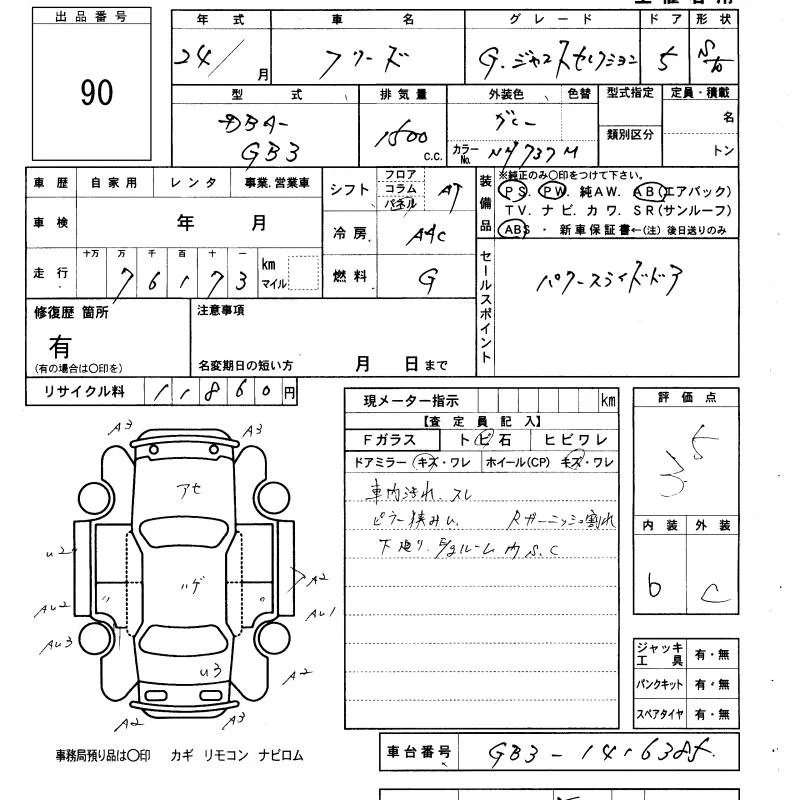 出品番号
90
年式 車名 グレード ドア 形状
24/ 月 フリード G.ジャストセレクション 5
型式 排気量 外装色 色替 型式指定 定員・積載
DBA-
GB3
1500 c.c.
グレー
カラーNo. NH737M
類別区分
名
トン
車歴 自家用 レンタ 事業.営業車
車検 年 月
走行 十万 万 千 百 十 一
7 6 1 7 3
km
マイル
シフト フロア コラム パネル AT
冷房 AAC
燃料 G
装備品
※純正のみ○印をつけて下さい。
PS. PW. 純AW. AB(エアバック)
TV. ナビ. カワ. SR(サンルーフ)
ABS ・ 新車保証書←(注) 後日送りのみ
セールスポイント
パワースライドドア
修復歴 箇所
有
(有の場合は○印を)
注意事項
名変期日の短い方 月 日まで
リサイクル料 11860円
現メーター指示 km
【査定員記入】
Fガラス トビ石 ヒビワレ
ドアミラー キズ・ワレ ホイール(CP) キズ・ワレ
車内汚れ.スレ
ピラー狭み凹. Rガーニッシュ割れ
下廻り. E/gルーム 内 S.C
評価点
3.5
内装 外装
b C
A3 A3
アセ
U2 A2
ハゲ
〃 〃
AU2 AU1
AU3
U3 A2
A2 A3
ジャッキ工具 有・無
パンクキット 有・無
スペアタイヤ 有・無
事務局預り品は○印 カギ リモコン ナビロム
車台番号 GB3-1416385